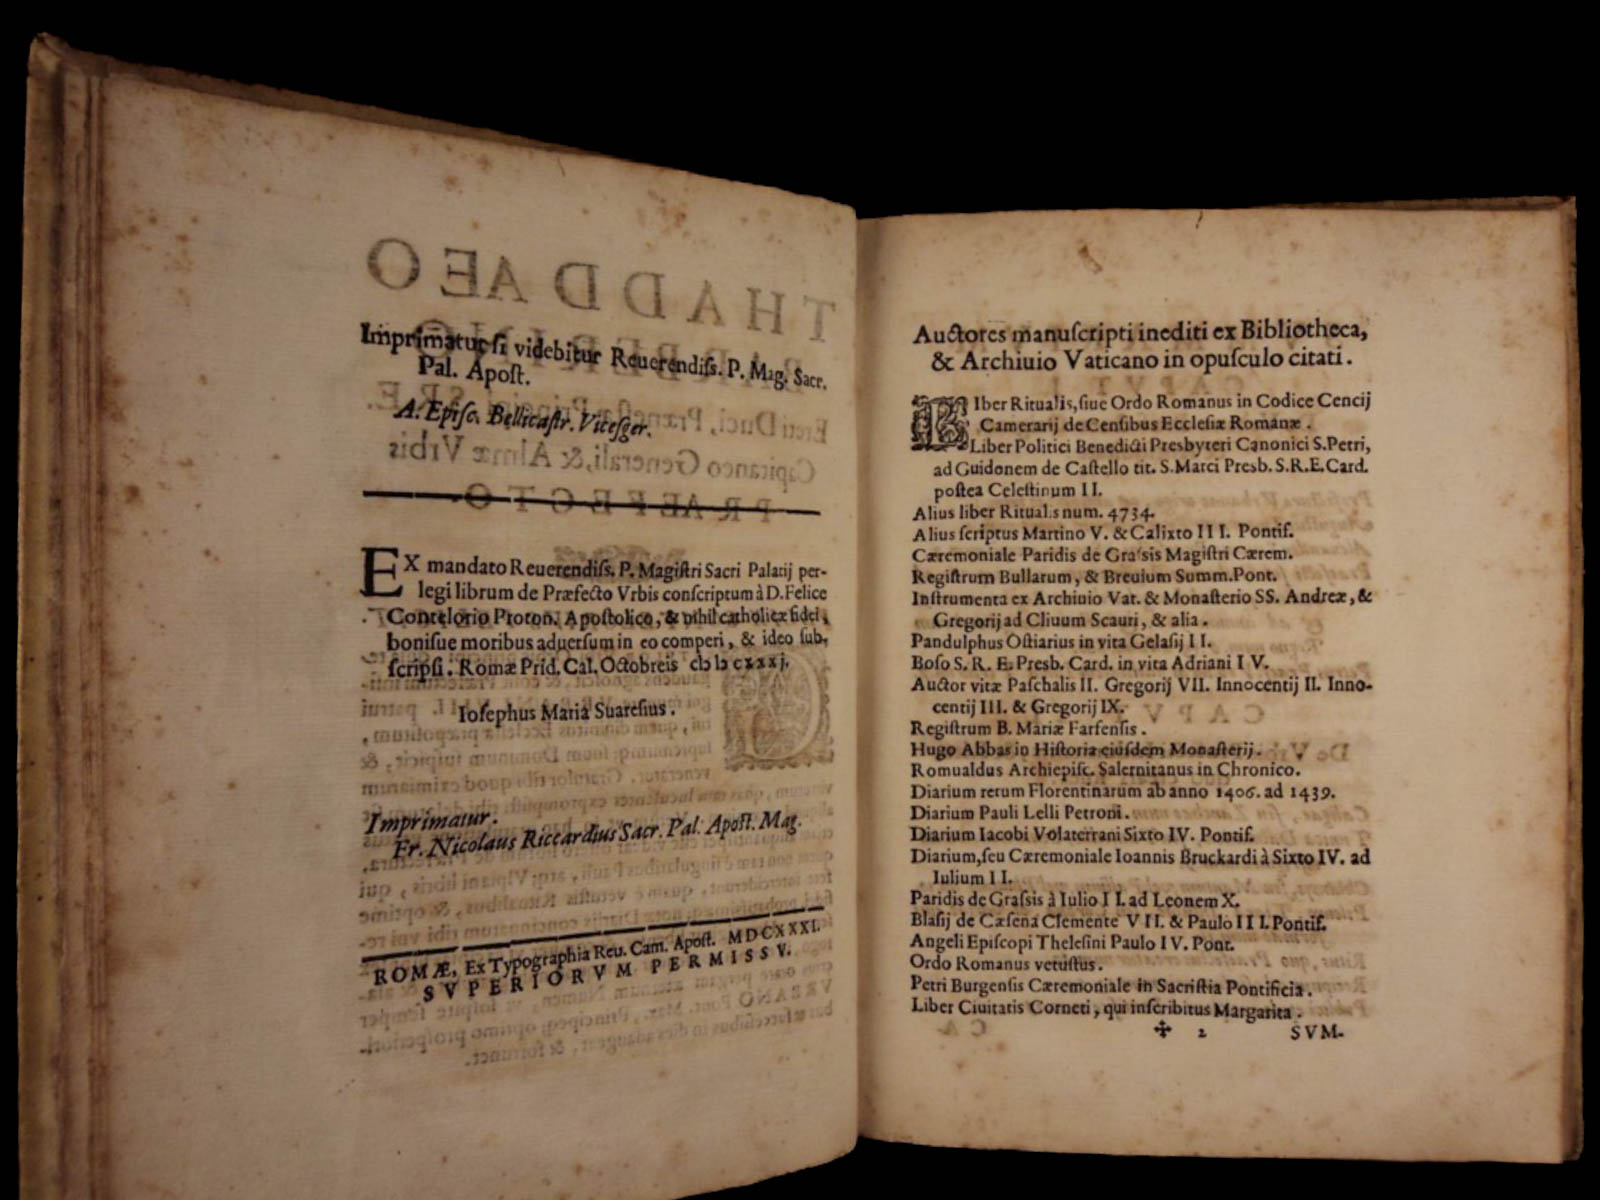 Imprimatur si videbitur Reuerendiſs. P. Mag. Sacr.
Pal. Apoſt.
A. Epiſc. Bellicaſtr. Viceſger.
EX mandato Reuerendiſs. P. Magiſtri Sacri Palatij per-
legi librum de Præfecto Vrbis conſcriptum à D. Felice
Contelorio Proton. Apoſtolico, & nihil catholicæ fidei,
boniſue moribus aduerſum in eo comperi, & ideo ſub-
ſcripſi. Romæ Prid. Cal. Octobreis cIɔ Iɔ cxxxj.
Ioſephus Maria Suareſius.
Imprimatur.
Fr. Nicolaus Riccardius Sacr. Pal. Apoſt. Mag.
ROMÆ, Ex Typographia Reu. Cam. Apoſt. MDCXXXI.
SVPERIORVM PERMISSV.
Auctores manuſcripti inediti ex Bibliotheca,
& Archiuio Vaticano in opuſculo citati.
Iber Ritualis, ſiue Ordo Romanus in Codice Cencij
Camerarij de Cenſibus Eccleſiæ Romanæ.
Liber Politici Benedicti Presbyteri Canonici S. Petri,
ad Guidonem de Caſtello tit. S. Marci Presb. S.R.E. Card.
poſtea Celeſtinum II.
Alius liber Ritualis num. 4734.
Alius ſcriptus Martino V. & Calixto III. Pontif.
Cæremoniale Paridis de Graſsis Magiſtri Cærem.
Regiſtrum Bullarum, & Breuium Summ. Pont.
Inſtrumenta ex Archiuio Vat. & Monaſterio SS. Andreæ, &
Gregorij ad Cliuum Scauri, & alia.
Pandulphus Oſtiarius in vita Gelaſij II.
Boſo S. R. E. Presb. Card. in vita Adriani IV.
Auctor vitæ Paſchalis II. Gregorij VII. Innocentij II. Inno-
centij III. & Gregorij IX.
Regiſtrum B. Mariæ Farfenſis.
Hugo Abbas in Hiſtoria eiuſdem Monaſterij.
Romualdus Archiepiſc. Salernitanus in Chronico.
Diarium rerum Florentinarum ab anno 1406. ad 1439.
Diarium Pauli Lelli Petroni.
Diarium Iacobi Volaterrani Sixto IV. Pontif.
Diarium, ſeu Cæremoniale Ioannis Bruckardi à Sixto IV. ad
Iulium II.
Paridis de Graſsis à Iulio II. ad Leonem X.
Blaſij de Cæſena Clemente VII. & Paulo III. Pontif.
Angeli Epiſcopi Theleſini Paulo IV. Pont.
Ordo Romanus vetuſtus.
Petri Burgenſis Cæremoniale in Sacriſtia Pontificia.
Liber Ciuitatis Corneti, qui inſcribitus Margarita.
✣ 2 SVM-